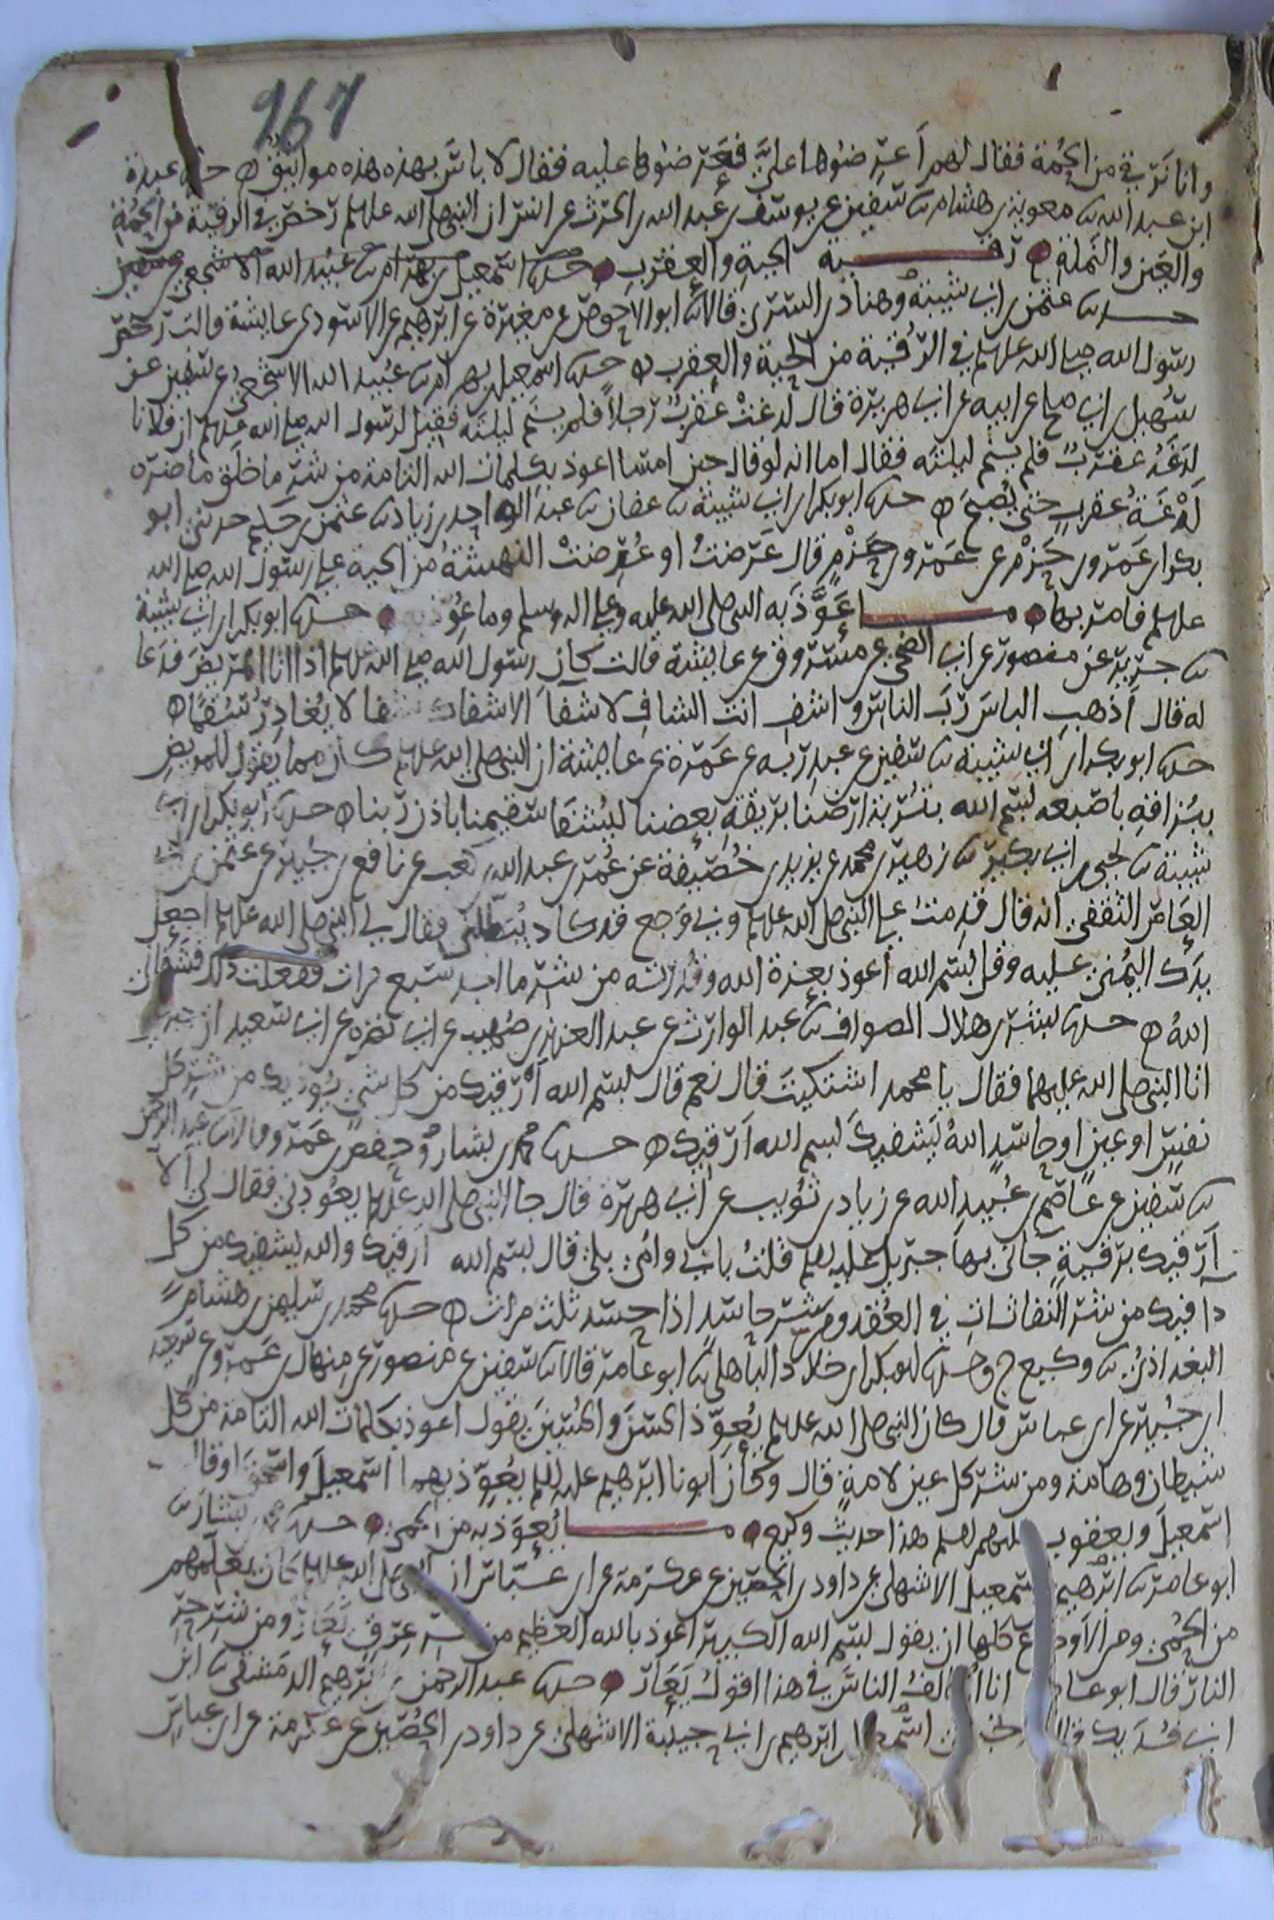 267
وانا نرقي من الحمة فقال لهم اعرضوها علي فعرضوها عليه فقال لا باس بهذه هذه مواثيق حدثنا عبدة
ابن عبد الله ثنا معوية بن هشام ثنا سفين عن يوسف بن عبد الله بن الحرث عن انس ان النبي صلى الله عليه وسلم رخص في الرقية من الحمة
والعين والنملة رقية الحية والعقرب حدثنا اسمعيل بن بهرام ثنا عبيد الله الاشجعي عن سفين
حدثنا عثمن بن ابي شيبة وهناد بن السري قالا ثنا ابو الاحوص عن مغيرة عن ابرهيم عن الاسود عن عايشة قالت رخص
رسول الله صلى الله عليه وسلم في الرقية من الحية والعقرب حدثنا اسمعيل بن بهرام ثنا عبيد الله الاشجعي عن سفين عن
سهيل بن ابي صالح عن ابيه عن ابي هريرة قال لدغت عقرب رجلا فلم ينم ليلته فقيل لرسول الله صلى الله عليه وسلم ان فلانا
لدغته عقرب فلم ينم ليلته فقال اما انه لو قال حين امسا اعوذ بكلمات الله التامة من شر ما خلق ما ضره
لدغة عقرب حتى يصبح حدثنا ابو بكر بن ابي شيبة ثنا عفان ثنا عبد الواحد بن زياد ثنا عثمن بن حكيم حدثني ابو
بكر بن عمرو بن حزم عن عمرو بن حزم قال عرضت او عرضت النهشة من الحية على رسول الله صلى الله
عليه وسلم فامر بها ما عوذ به النبي صلى الله عليه وعلى اله وسلم وما عوذ به حدثنا ابو بكر بن ابي شيبة
ثنا جرير عن منصور عن ابي الضحى عن مسروق عن عايشة قالت كان رسول الله صلى الله عليه وسلم اذا اتا المريض فدعا
له قال اذهب الباس رب الناس واشف انت الشافي لا شفا الا شفاك شفا لا يغادر سقما
حدثنا ابو بكر بن ابي شيبة ثنا سفين عن عبد ربه عن عمرة عن عايشة ان النبي صلى الله عليه وسلم كان مما يقول للمريض
ببزاقه باصبعه بسم الله بتربة ارضنا بريقة بعضنا ليشفا سقيمنا باذن ربنا حدثنا ابو بكر بن ابي
شيبة ثنا يحيى بن ابي بكير ثنا زهير بن محمد عن يزيد بن خصيفة عن عمرو بن عبد الله بن كعب عن نافع بن جبير عن عثمن بن ابي
العاص الثقفي انه قال قدمت على النبي صلى الله عليه وسلم وبي وجع قد كاد يبطلني فقال لي النبي صلى الله عليه وسلم اجعل
يدك اليمنى عليه وقل بسم الله اعوذ بعزة الله وقدرته من شر ما اجد سبع مرات ففعلت ذلك فشفاني
الله حدثنا بشر بن هلال الصواف ثنا عبد الوارث عن عبد العزيز بن صهيب عن ابي نضرة عن ابي سعيد ان جبريل
اتا النبي صلى الله عليهما فقال يا محمد اشتكيت قال نعم قال بسم الله ارقيك من كل شي يوذيك من شر كل
نفس او عين او حاسد الله يشفيك بسم الله ارقيك حدثنا محمد بن بشار وحفص بن عمرو قالا ثنا عبد الرحمن
ثنا سفين عن عاصم بن عبيد الله عن زياد بن ثويب عن ابي هريرة قال جا النبي صلى الله عليه وسلم يعودني فقال لي الا
ارقيك برقية جاني بها جبريل عليه السلم قلت بابي وامي بلى قال بسم الله ارقيك والله يشفيك من كل
دا فيك من شر النفاثات في العقد ومن شر حاسد اذا حسد ثلث مرات حدثنا محمد بن سليمن بن هشام
البغداذي ثنا وكيع ح وحدثنا ابو بكر بن خلاد الباهلي ثنا ابو عامر قالا ثنا سفين عن منصور عن منهال بن عمرو عن سعيد
ابن جبير عن ابن عباس قال كان النبي صلى الله عليه وسلم يعوذ الحسن والحسين يقول اعوذ بكلمات الله التامة من كل
شيطان وهامة ومن شر كل عين لامة قال وكان ابونا ابرهيم عليه السلم يعوذ بهما اسمعيل واسحق او قال
اسمعيل ويعقوب عليهم السلم هذا حديث وكيع ما يعوذ به من الحمى حدثنا محمد بن بشار ثنا
ابو عامر ثنا ابرهيم بن اسمعيل الاشهلي عن داود بن الحصين عن عكرمة عن ابن عباس ان النبي صلى الله عليه وسلم كان يعلمهم
من الحمى ومن الاوجاع كلها ان يقول بسم الله الكبير اعوذ بالله العظيم من شر عرق نعار ومن شر حر
النار قال ابو عامر انا اخالف الناس في هذا اقول يعار حدثنا عبد الرحمن بن ابرهيم الدمشقي ثنا ابن
ابي فديك قال اخبرني ابن اسمعيل بن ابرهيم بن ابي حبيبة الاشهلي عن داود بن الحصين عن عكرمة عن ابن عباس